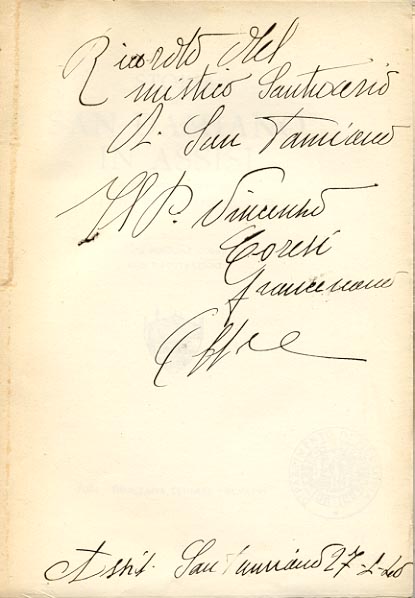 Ricordo del
mistico Santuario
di San Damiano
Il P. Vincenzo
Coresi
francescano
Assisi. San Damiano 27